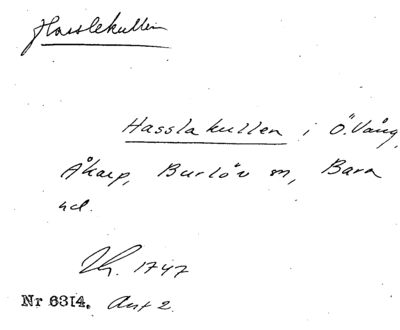 Hasslekullen
Hasslakullen i Ö. Vång,
Åkarp, Burlöv sn, Bara
hd.
1747
Nr 6314. Akt 2.